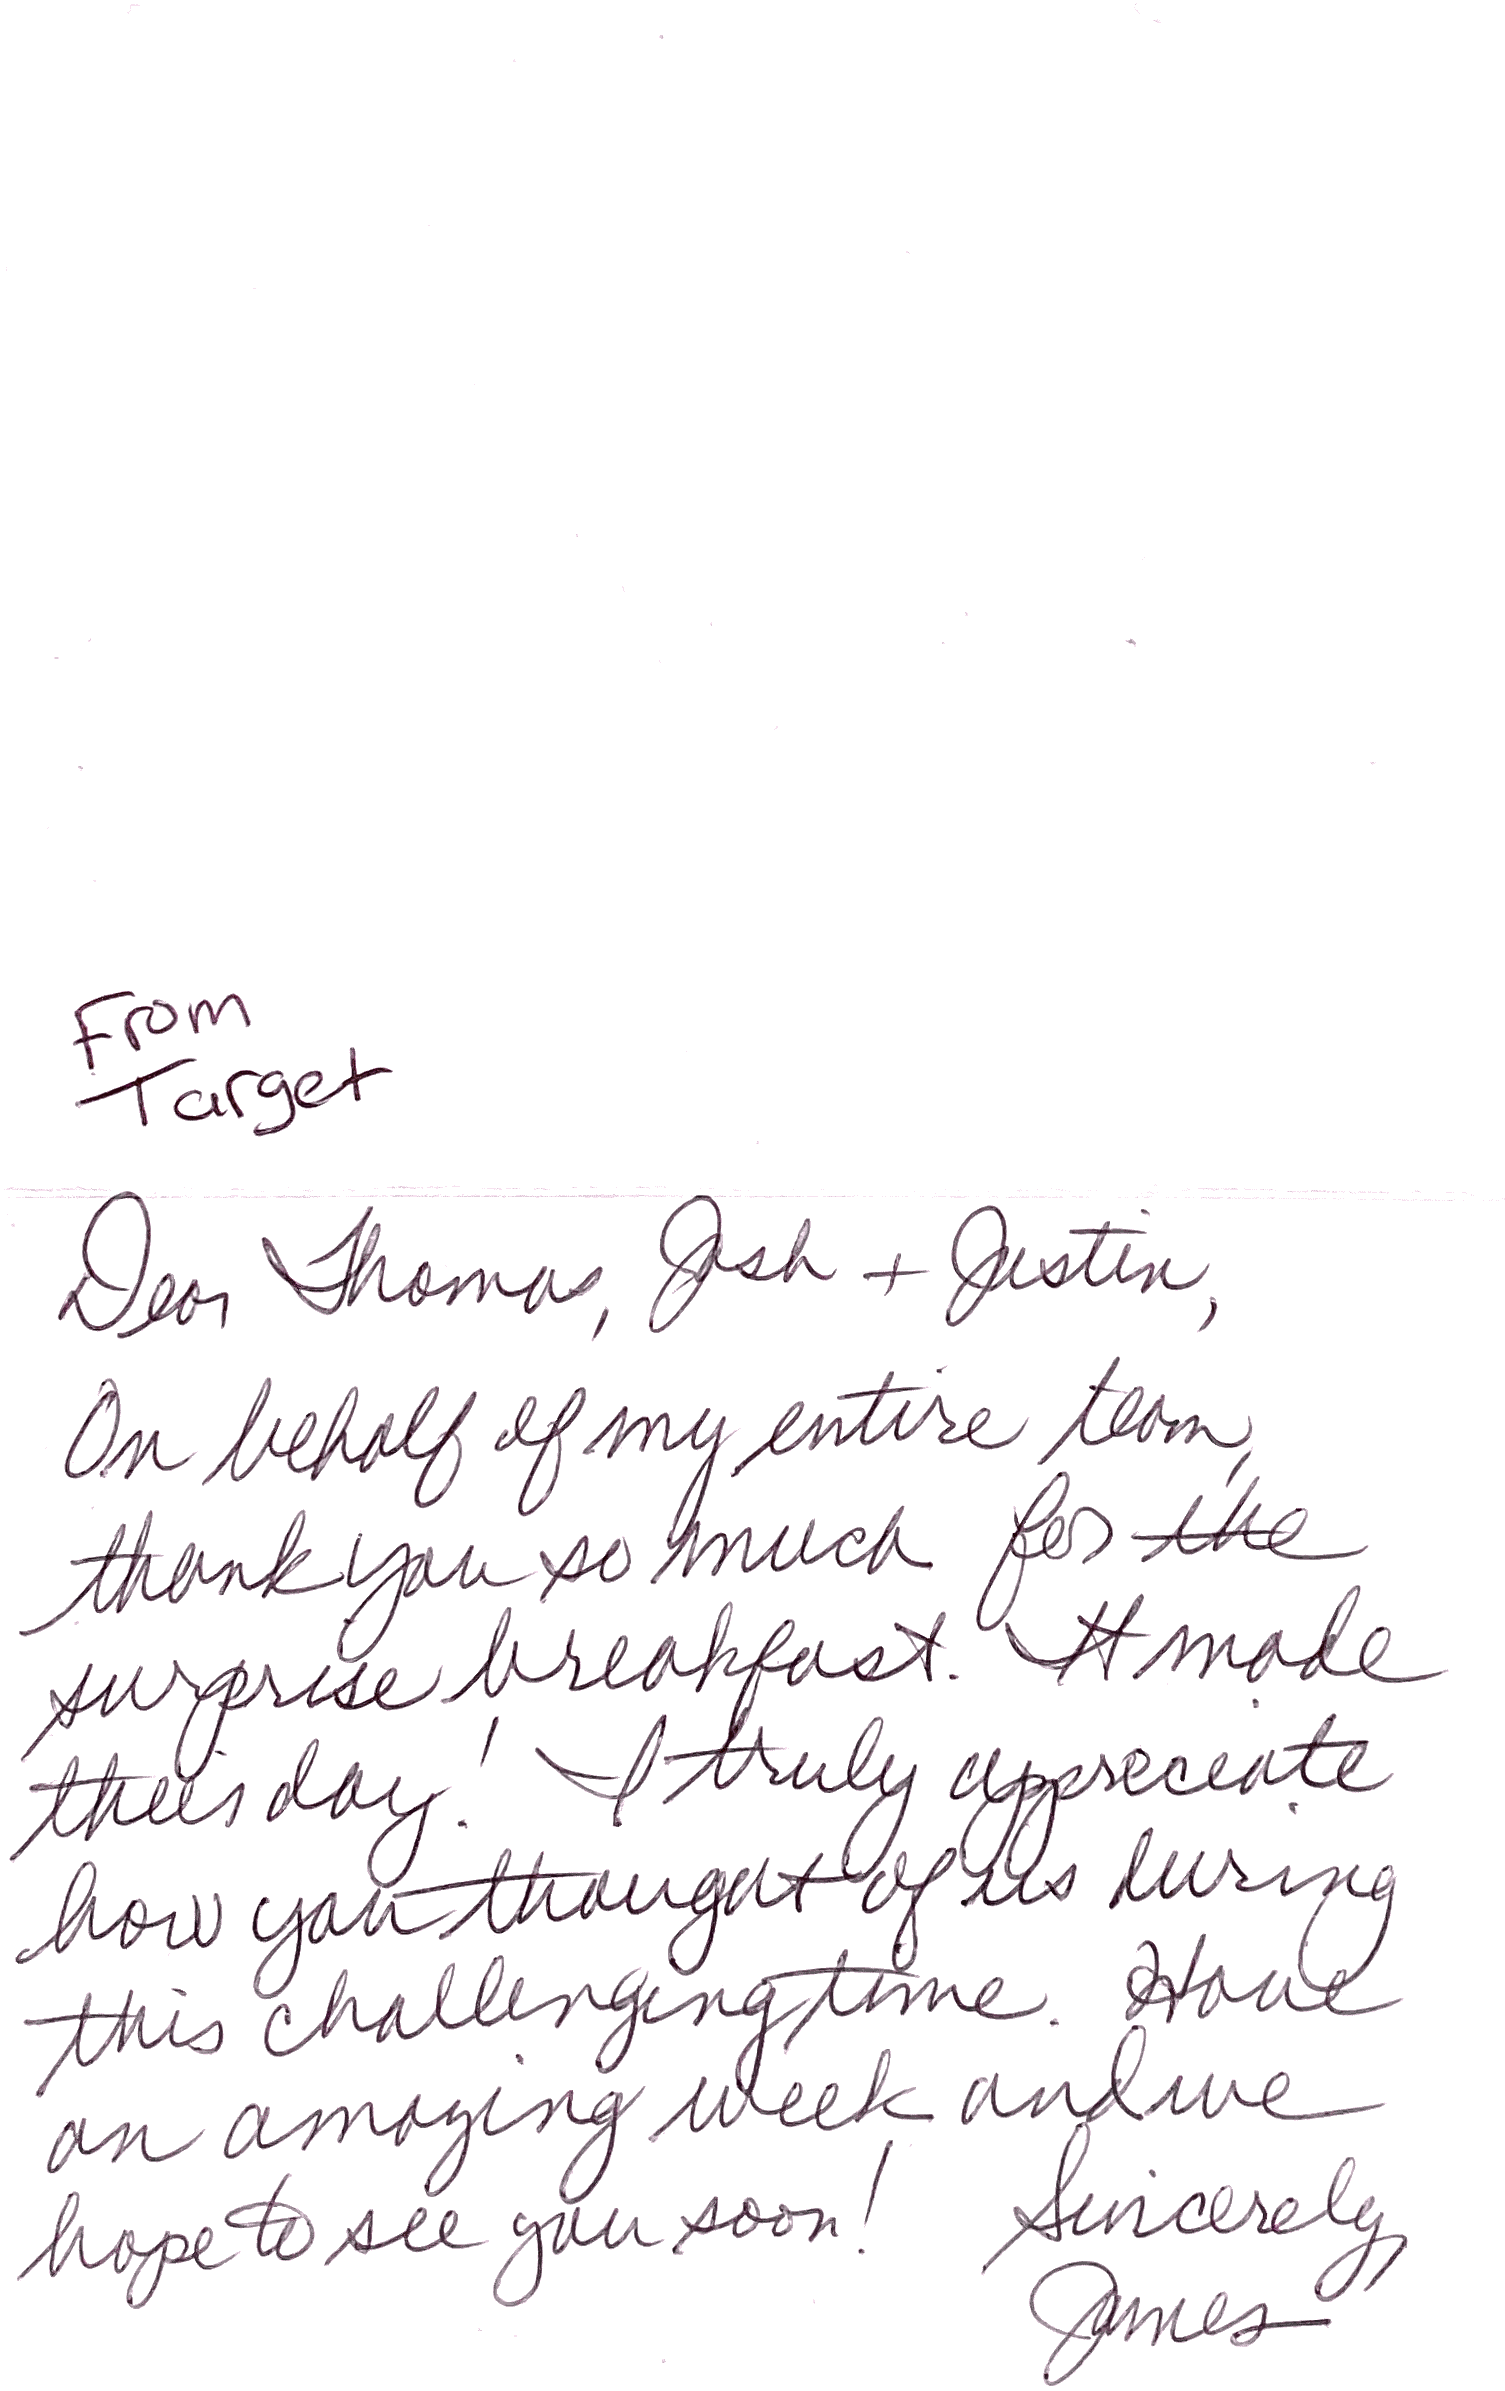 From
Target
Dear Thomas, Josh + Justin,
On behalf of my entire team,
thank you so much for the
surprise breakfast. It made
their day! I truly appreciate
how you thought of us during
this challenging time. Have
an amazing week and we
hope to see you soon! Sincerely,
James